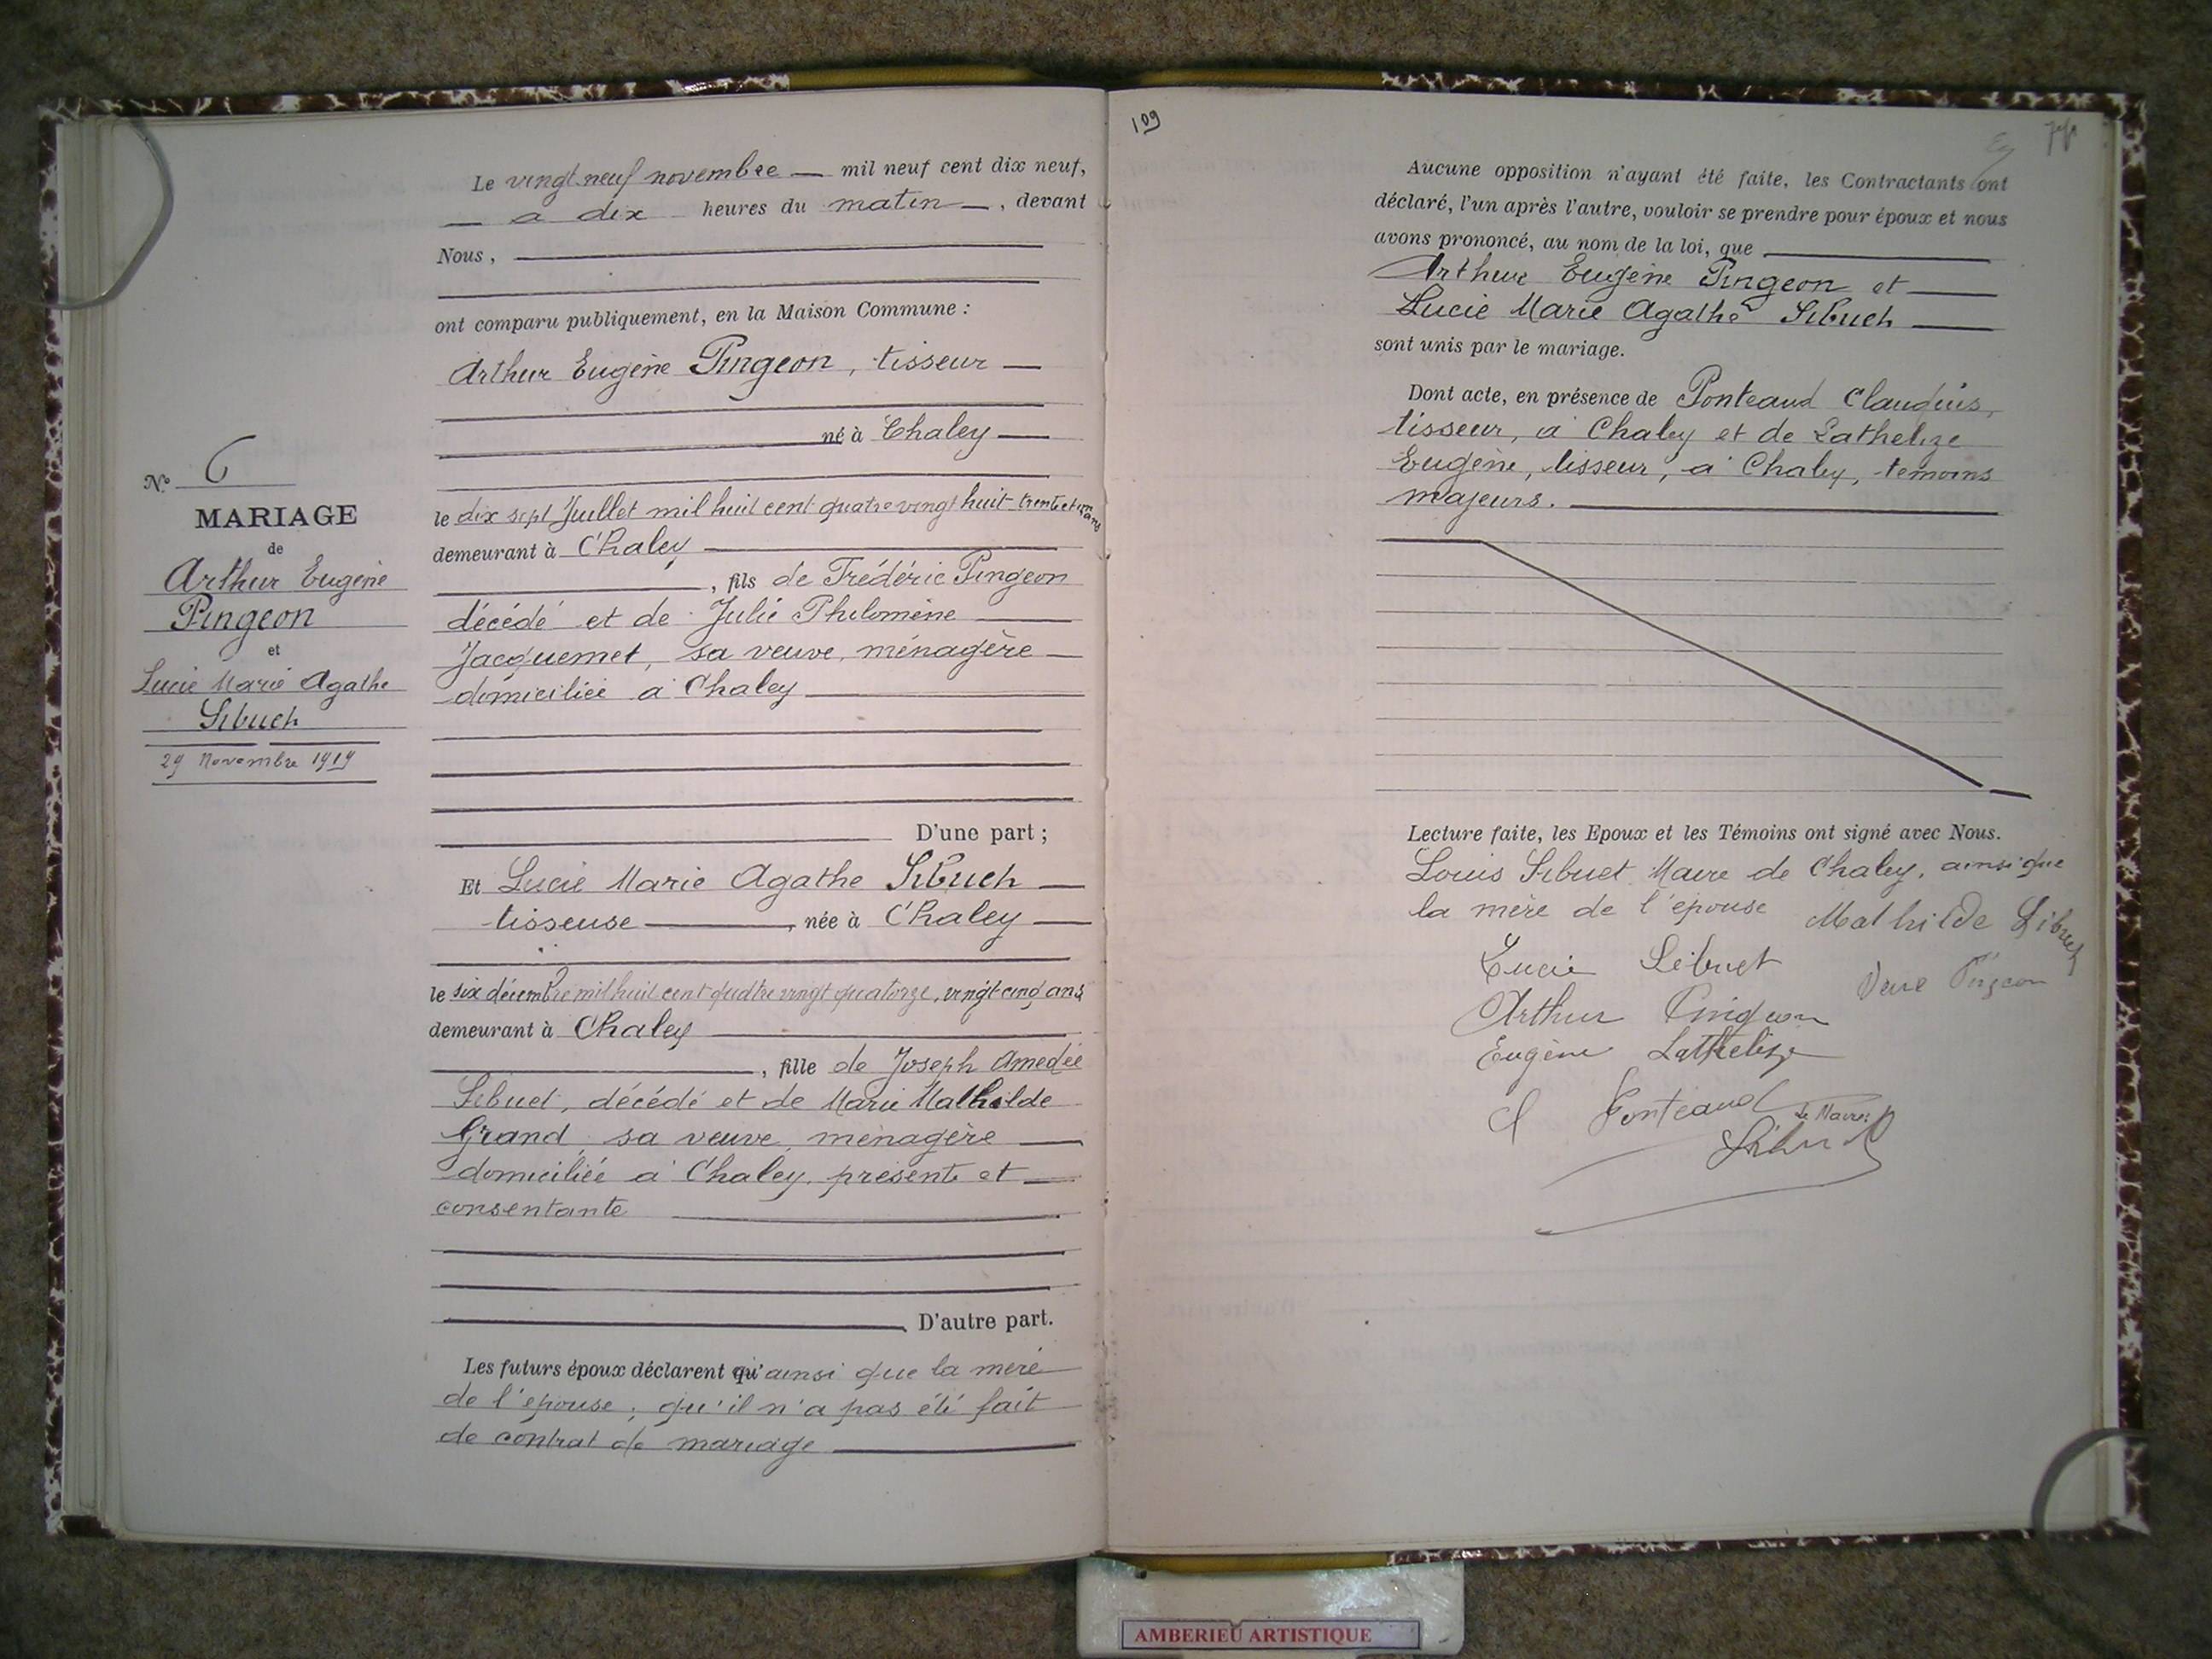 Le vingt neuf novembre mil neuf cent dix neuf,
à dix heures du matin, devant
Nous,
ont comparu publiquement, en la Maison Commune :
Arthur Eugène Pingeon, tisseur
né à Chaley
le dix sept Juillet mil huit cent quatre vingt huit trente et un ans
demeurant à Chaley
, fils de Frédéric Pingeon
décédé et de Julie Philomène
Jacquemet, sa veuve, ménagère
domiciliée à Chaley
D'une part ;
Et Lucie Marie Agathe Sibuet
tisseuse, née à Chaley
le six décembre mil huit cent quatre vingt quatorze, vingt cinq ans
demeurant à Chaley
, fille de Joseph Amedée
Sibuet, décédé et de Marie Mathilde
Grand, sa veuve, ménagère
domiciliée à Chaley, présente et
consentante
D'autre part.
Les futurs époux déclarent qu'ainsi que la mère
de l'épouse ; qu'il n'a pas été fait
de contrat de mariage
N° 6
MARIAGE
de
Arthur Eugène
Pingeon
et
Lucie Marie Agathe
Sibuet
29 Novembre 1919
109
Aucune opposition n'ayant été faite, les Contractants ont
déclaré, l'un après l'autre, vouloir se prendre pour époux et nous
avons prononcé, au nom de la loi, que
Arthur Eugène Pingeon et
Lucie Marie Agathe Sibuet
sont unis par le mariage.
Dont acte, en présence de Ponteaud Claudius,
tisseur, à Chaley et de Lathelize
Eugène, tisseur, à Chaley, témoins
majeurs.
Lecture faite, les Epoux et les Témoins ont signé avec Nous.
Louis Sibuet Maire de Chaley, ainsi que
la mère de l'épouse Mathilde Sibuet
Lucie Sibuet
Veuve Pingeon
Arthur Pingeon
Eugène Lathelize
Cl Ponteaud
Le Maire:
Sibuet
AMBERIEU ARTISTIQUE